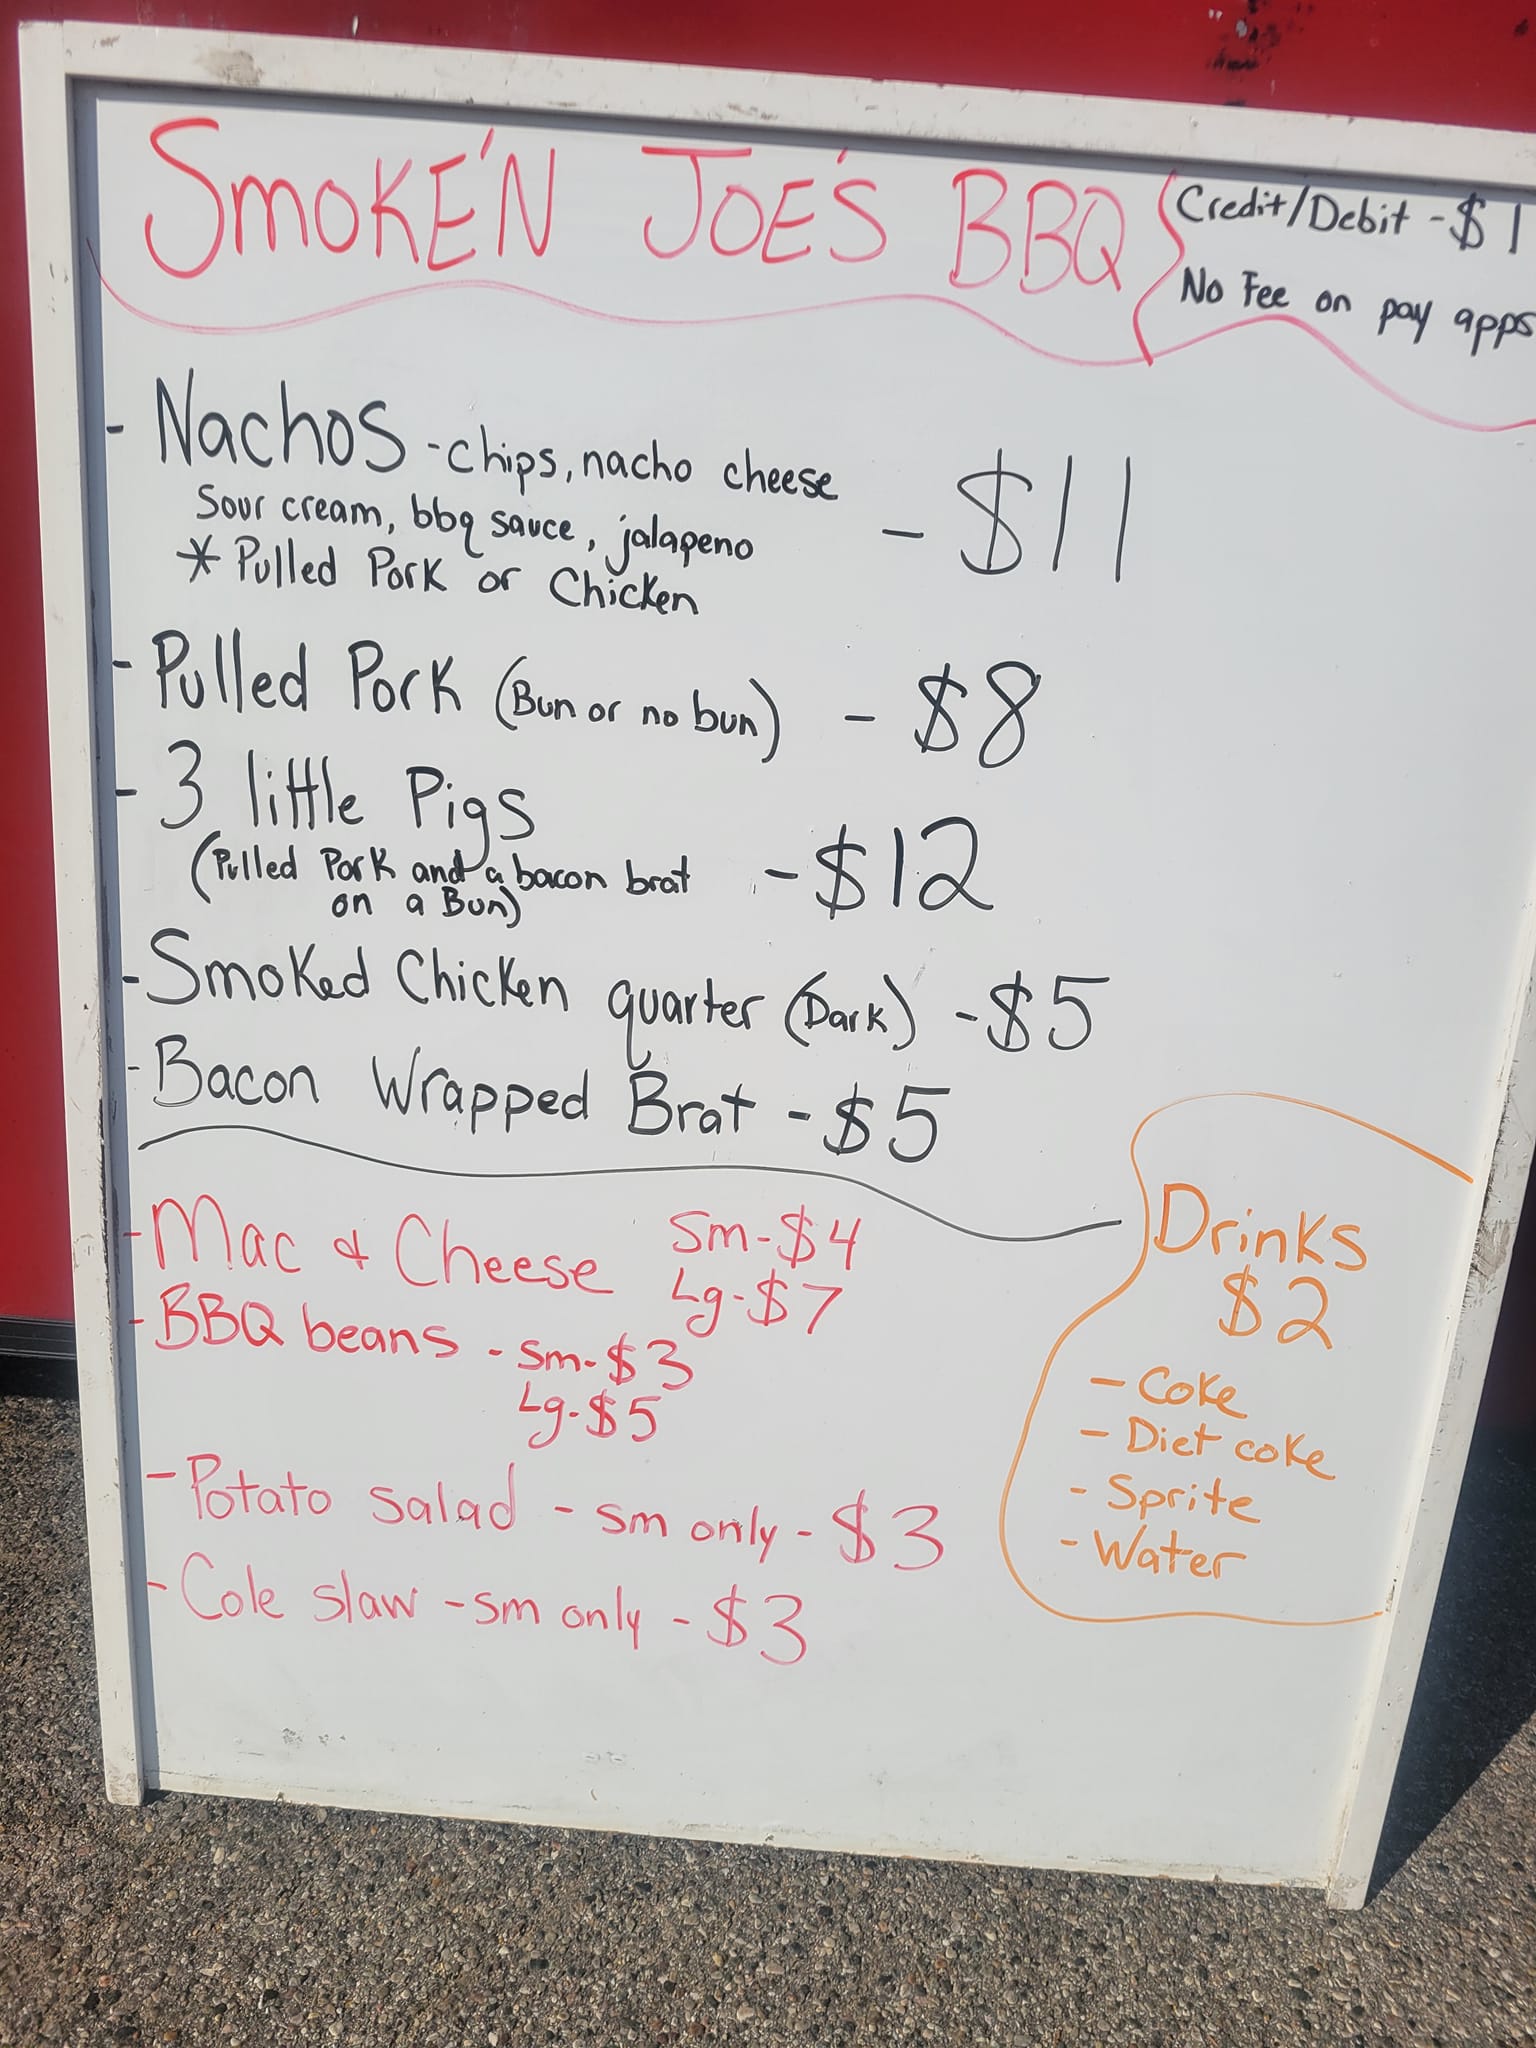 SMOKE'N JOE'S BBQ
Credit/Debit - $1
No Fee on pay apps
- Nachos - chips, nacho cheese
sour cream, bbq sauce, jalapeno - $11
* Pulled Pork or Chicken
- Pulled Pork (Bun or no bun) - $8
- 3 little Pigs
(Pulled Pork and a bacon brat - $12
on a Bun)
- Smoked Chicken quarter (Dark) - $5
- Bacon Wrapped Brat - $5
- Mac & Cheese Sm - $4
Lg - $7
- BBQ beans - sm - $3
Lg - $5
- Potato salad - sm only - $3
- Cole slaw - sm only - $3
Drinks
$2
- Coke
- Diet coke
- Sprite
- Water